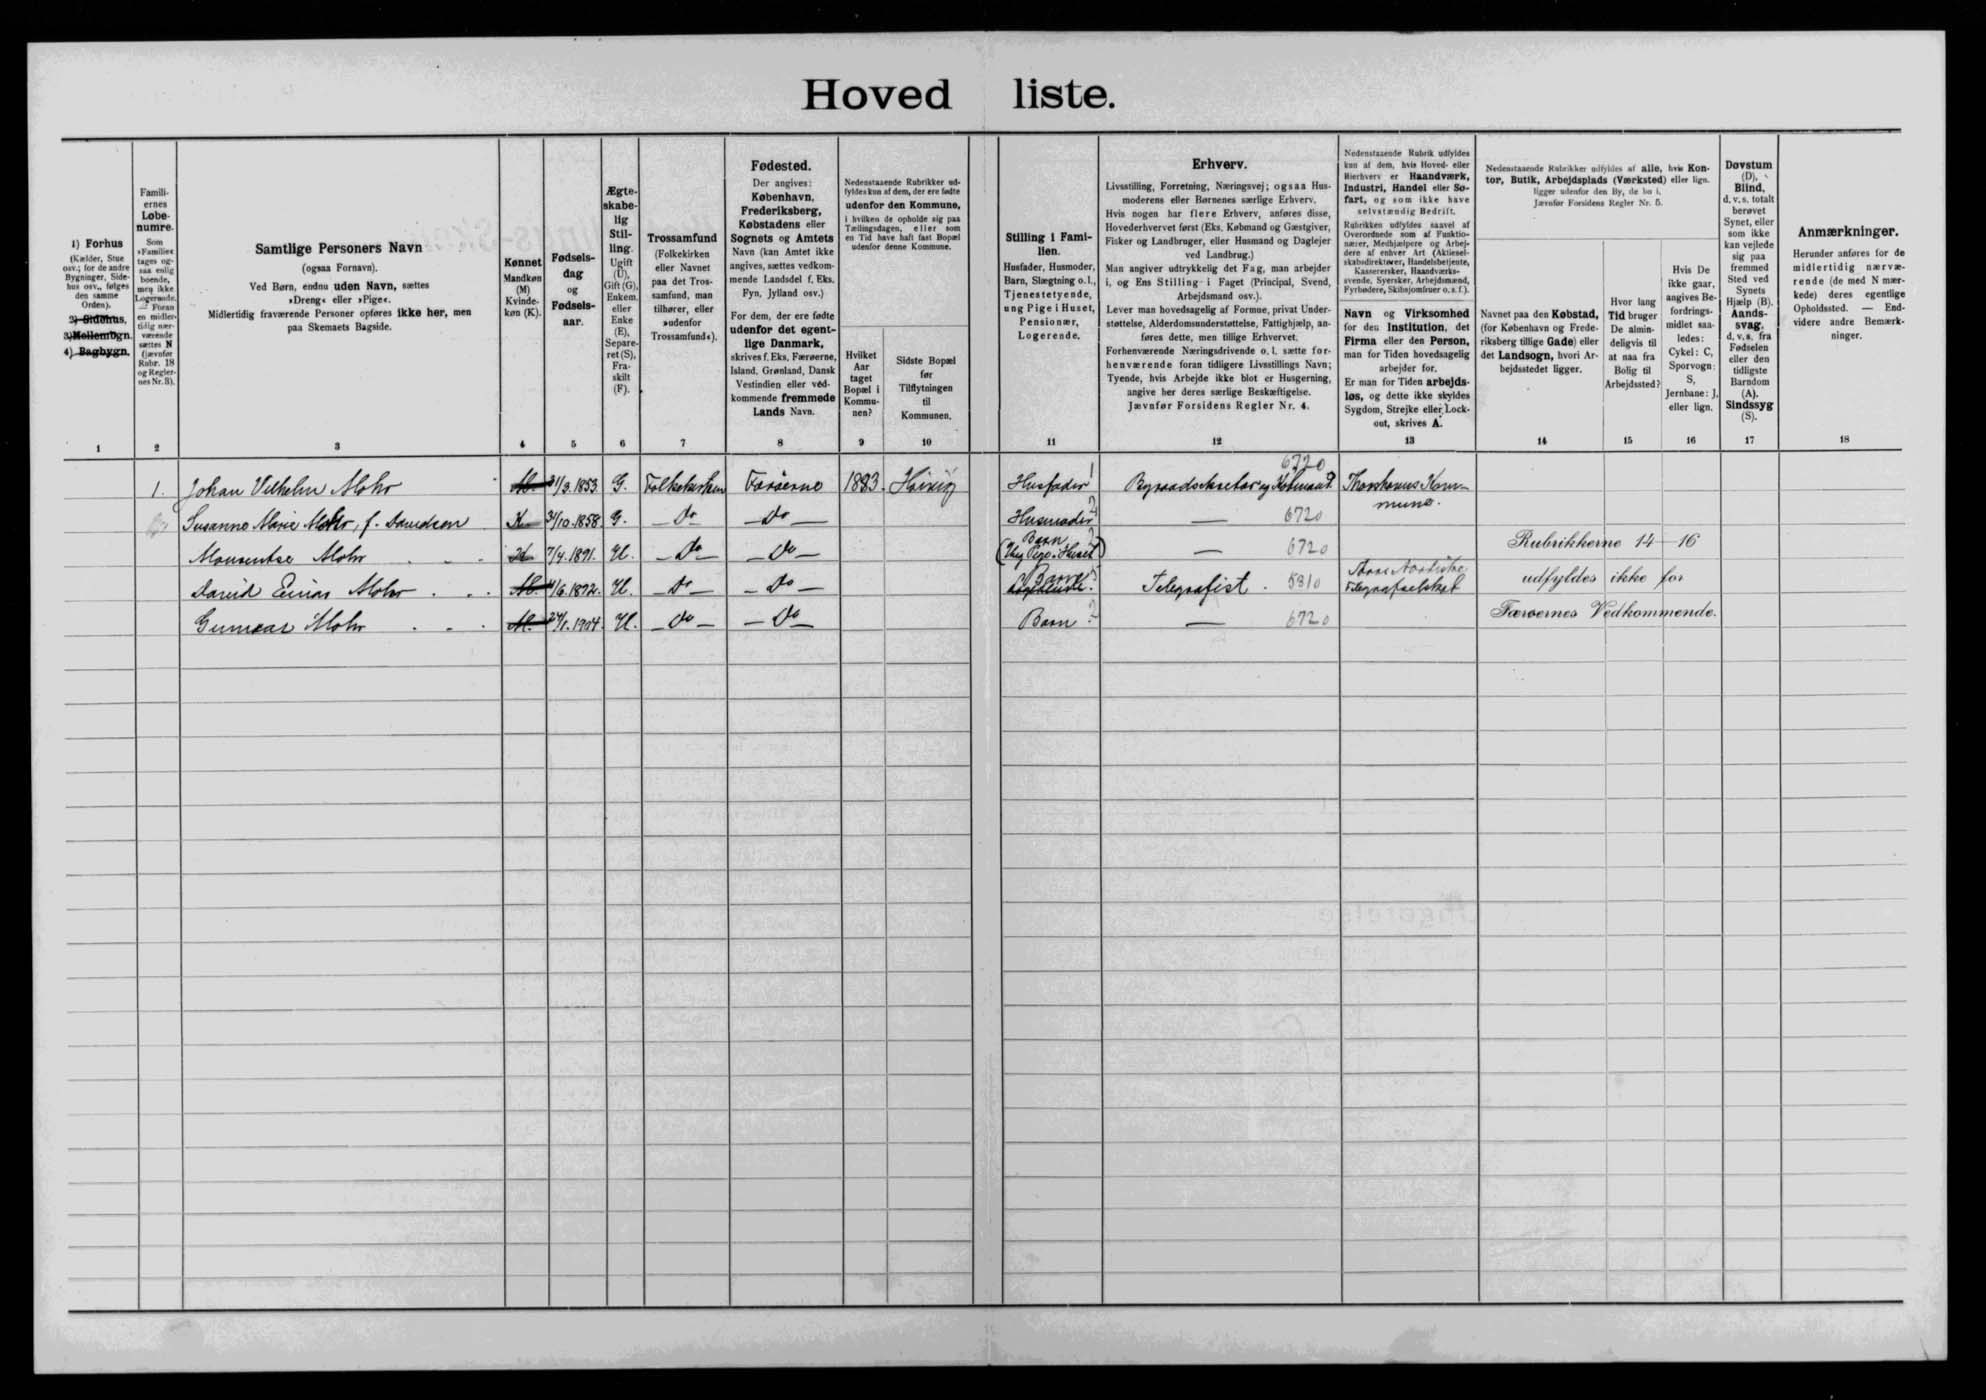 Hoved liste.
1) Forhus
(Kælder, Stue
osv.; for de andre
Bygninger, Side-
hus osv., følges
den samme
Orden).
2) Sidehus.
3) Mellembgn.
4) Bagbygn.
1
Famili-
ernes
Løbe-
numre.
Som
»Familie«
tages og-
saa enlig
boende,
men ikke
Logerende.
— Foran
en midler-
tidig nær-
værende
sættes N
(jævnfør
Rubr. 18
og Regler-
nes Nr. 3).
2
Samtlige Personers Navn
(ogsaa Fornavn).
Ved Børn, endnu uden Navn, sættes
»Dreng« eller »Pige«.
Midlertidig fraværende Personer opføres ikke her, men
paa Skemaets Bagside.
3
Kønnet
Mandkøn
(M)
Kvinde-
køn (K).
4
Fødsels-
dag
og
Fødsels-
aar.
5
Ægte-
skabe-
lig
Stil-
ling.
Ugift
(U),
Gift (G),
Enkem.
eller
Enke
(E),
Separe-
ret (S),
Fra-
skilt
(F).
6
Trossamfund
(Folkekirken
eller Navnet
paa det Tros-
samfund, man
tilhører, eller
»udenfor
Trossamfund«).
7
Fødested.
Der angives:
København,
Frederiksberg,
Købstadens eller
Sognets og Amtets
Navn (kan Amtet ikke
angives, sættes vedkom-
mende Landsdel f. Eks.
Fyn, Jylland osv.)
For dem, der ere fødte
udenfor det egent-
lige Danmark,
skrives f. Eks. Færøerne,
Island, Grønland, Dansk
Vestindien eller ved-
kommende fremmede
Lands Navn.
8
Nedenstaaende Rubrikker ud-
fyldes kun af dem, der ere fødte
udenfor den Kommune,
i hvilken de opholde sig paa
Tællingsdagen, eller som
en Tid have haft fast Bopæl
udenfor denne Kommune.
Hvilket
Aar
taget
Bopæl i
Kommu-
nen?
9
Sidste Bopæl
før
Tilflytningen
til
Kommunen.
10
Stilling i Fami-
lien.
Husfader, Husmoder,
Barn, Slægtning o. l.,
Tjenestetyende,
ung Pige i Huset,
Pensionær,
Logerende.
11
Erhverv.
Livsstilling, Forretning, Næringsvej; ogsaa Hus-
moderens eller Børnenes særlige Erhverv.
Hvis nogen har flere Erhverv, anføres disse,
Hovederhvervet først (Eks. Købmand og Gæstgiver,
Fisker og Landbruger, eller Husmand og Daglejer
ved Landbrug.)
Man angiver udtrykkelig det Fag, man arbejder
i, og Ens Stilling i Faget (Principal, Svend,
Arbejdsmand osv.).
Lever man hovedsagelig af Formue, privat Under-
støttelse, Alderdomsunderstøttelse, Fattighjælp, an-
føres dette, men tillige Erhvervet.
Forhenværende Næringsdrivende o. l. sætte for-
henværende foran tidligere Livsstillings Navn;
Tyende, hvis Arbejde ikke blot er Husgerning,
angive her deres særlige Beskæftigelse.
Jævnfør Forsidens Regler Nr. 4.
12
Nedenstaaende Rubrik udfyldes
kun af dem, hvis Hoved- eller
Bierhverv er Haandværk,
Industri, Handel eller Sø-
fart, og som ikke have
selvstændig Bedrift.
Rubrikken udfyldes saavel af
Overordnede som af Funktio-
nærer, Medhjælpere og Arbej-
dere af enhver Art (Aktiesel-
skabsdirektører, Handelsbetjente,
Kassererskel, Haandværks-
svende, Syersker, Arbejdsmænd,
Fyrbødere, Skibsjomfruer o. s. f.).
Navn og Virksomhed
for den Institution, det
Firma eller den Person,
man for Tiden hovedsagelig
arbejder for.
Er man for Tiden arbejds-
løs, og dette ikke skyldes
Sygdom, Strejke eller Lock-
out, skrives A.
13
Nedenstaaende Rubrikker udfyldes af alle, hvis Kon-
tor, Butik, Arbejdsplads (Værksted) eller lign.
ligger udenfor den By, de bo i.
Jævnfør Forsidens Regler Nr. 5.
Navnet paa den Købstad,
(for København og Frede-
riksberg tillige Gade) eller
det Landsogn, hvori Ar-
bejdsstedet ligger.
14
Hvor lang
Tid bruger
De almin-
deligvis til
at naa fra
Bolig til
Arbejdssted?
15
Hvis De
ikke gaar,
angives Be-
fordrings-
midlet saa-
ledes:
Cykel: C,
Sporvogn:
S,
Jernbane: J,
eller lign.
16
Døvstum
(D),
Blind,
d. v. s. totalt
berøvet
Synet, eller
som ikke
kan vejlede
sig paa
fremmed
Sted ved
Synets
Hjælp (B).
Aands-
svag,
d. v. s. fra
Fødselen
eller den
tidligste
Barndom
(A).
Sindssyg
(S).
17
Anmærkninger.
Herunder anføres for de
midlertidig nærvæ-
rende (de med N mær-
kede) deres egentlige
Opholdssted. — End-
videre andre Bemærk-
ninger.
18
1. Johan Vilhelm Mohr M. 31/3.1853. G. Folkekirken Færøerne 1883. Hoivig Husfader 1 Byraadssekretær og Købmand. 6720 Thorshavns Kom-
mune.
Susanne Marie Mohr, f. Davidsen K 31/10.1858 G. — do — — do — Husmoder 2 — 6720
Mohr K 7/4.1891. U. — do — — do — Barn 2 (Ung Pige i Huset) — 6720 Rubrikkerne 14-16
David Einar Mohr M. 1/6.1892. U. — do — — do — Barn 5 Telegrafist. 8810 Store Nordiske
Telegrafselskab udfyldes ikke for
Gunnar Mohr M. 24/1.1904. U. — do — — do — Barn 2 — 6720 Færøernes Vedkommende.